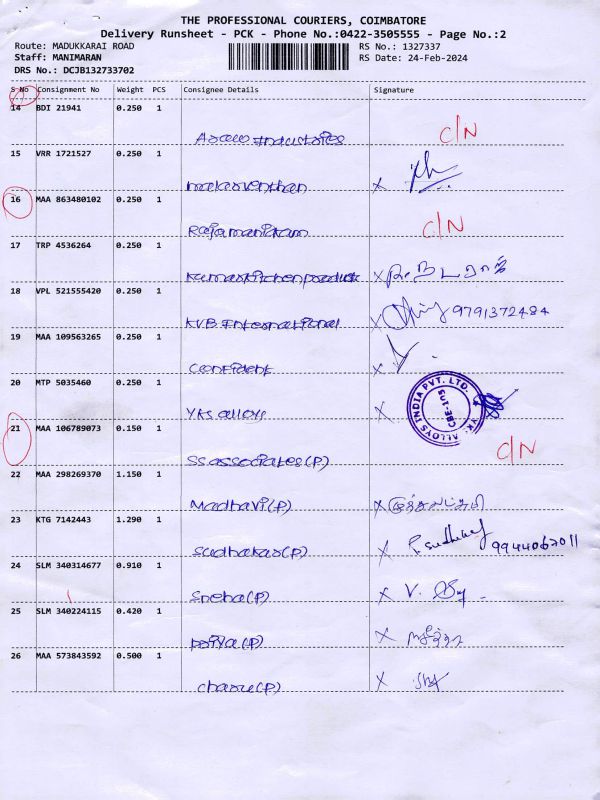 THE PROFESSIONAL COURIERS, COIMBATORE
Delivery Runsheet - PCK - Phone No.:0422-3505555 - Page No.:2
Route: MADUKKARAI ROAD RS No.: 1327337
Staff: MANIMARAN RS Date: 24-Feb-2024
DRS No.: DCJB132733702
S No Consignment No Weight PCS Consignee Details Signature
14 BDI 21941 0.250 1
Industries C/N
15 VRR 1721527 0.250 1
X
16 MAA 863480102 0.250 1
Rajamanickam C/N
17 TRP 4536264 0.250 1
Kumarkitchenproducts X
18 VPL 521555420 0.250 1
KVB International X 9791372484
19 MAA 109563265 0.250 1
Confident X
20 MTP 5035460 0.250 1
YKS alloys X ALLOYS INDIA PVT. LTD. CBE-105
21 MAA 106789073 0.150 1
SS associates (P) C/N
22 MAA 298269370 1.150 1
Madhavi (P) X
23 KTG 7142443 1.290 1
Sudhakar (P) X P. Sudhakar 9944067011
24 SLM 340314677 0.910 1
Sneha (P) X
25 SLM 340224115 0.420 1
Priya (P) X
26 MAA 573843592 0.500 1
Charu (P) X